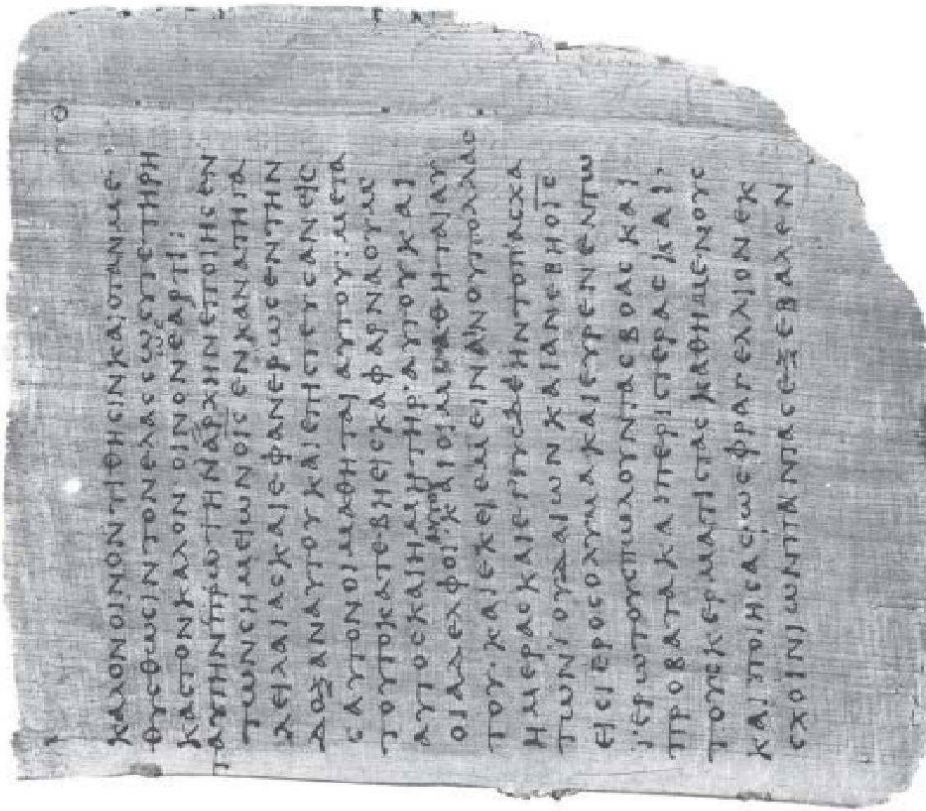 ΚΑΛΟΝΟΙΝΟΝΤΙΘΗϹΙΝΚΑΙΟΤΑΝΜΕ·
ΘΥϹΘΩϹΙΝΤΟΝΕΛΑϹϹΩϹΥΤΕΤΗΡΗ
ΚΑϹΤΟΝΚΑΛΟΝΟΙΝΟΝΕΑΡΤΙ:
ΤΑΥΤΗΝΠΡΩΤΗΝΑΡΧΗΝΕΠΟΙΗϹΕΝ
ΤΩΝϹΗΜΕΙΩΝΟΙ̅Ϲ̅ΕΝΚΑΝΑΤΗΓΑ
ΛΕΙΛΑΙΑϹΚΑΙΕΦΑΝΕΡΩϹΕΝΤΗΝ
ΔΟΞΑΝΑΥΤΟΥΚΑΙΕΠΙϹΤΕΥϹΑΝΕΙϹ
ΑΥΤΟΝΟΙΜΑΘΗΤΑΙΑΥΤΟΥ:ΜΕΤΑ
ΤΟΥΤΟΚΑΤΕΒΗΕΙϹΚΑΦΑΡΝΑΟΥΜ
ΑΥΤΟϹΚΑΙΗΜΗΤΗΡ·ΑΥΤΟΥΚΑΙ
ΟΙΑΔΕΛΦΟΙ·ΚΑΙΟΙΜΑΘΗΤΑΙΑΥ
ΤΟΥ·ΚΑΙΕΚΕΙΕΜΕΙΝΑΝΟΥΠΟΛΛΑϹ
ΗΜΕΡΑϹΚΑΙΕΓΓΥϹΔΕΗΝΤΟΠΑϹΧΑ
ΤΩΝΪΟΥΔΑΙΩΝΚΑΙΑΝΕΒΗΟΙ̅Ϲ̅
ΕΙϹΙΕΡΟϹΟΛΥΜΑΚΑΙΕΥΡΕΝΕΝΤΩ
ΪΕΡΩΤΟΥϹΠΩΛΟΥΝΤΑϹΒΟΑϹΚΑΙ
ΠΡΟΒΑΤΑΚΑΙΠΕΡΙϹΤΕΡΑϹΚΑΙ·
ΤΟΥϹΚΕΡΜΑΤΙϹΤΑϹΚΑΘΗΜΕΝΟΥϹ
ΚΑΙΠΟΙΗϹΑϹΩϹΦΡΑΓΕΛΛΙΟΝΕΚ
ϹΧΟΙΝΙΩΝΠΑΝΤΑϹΕΞΕΒΑΛΕΝ